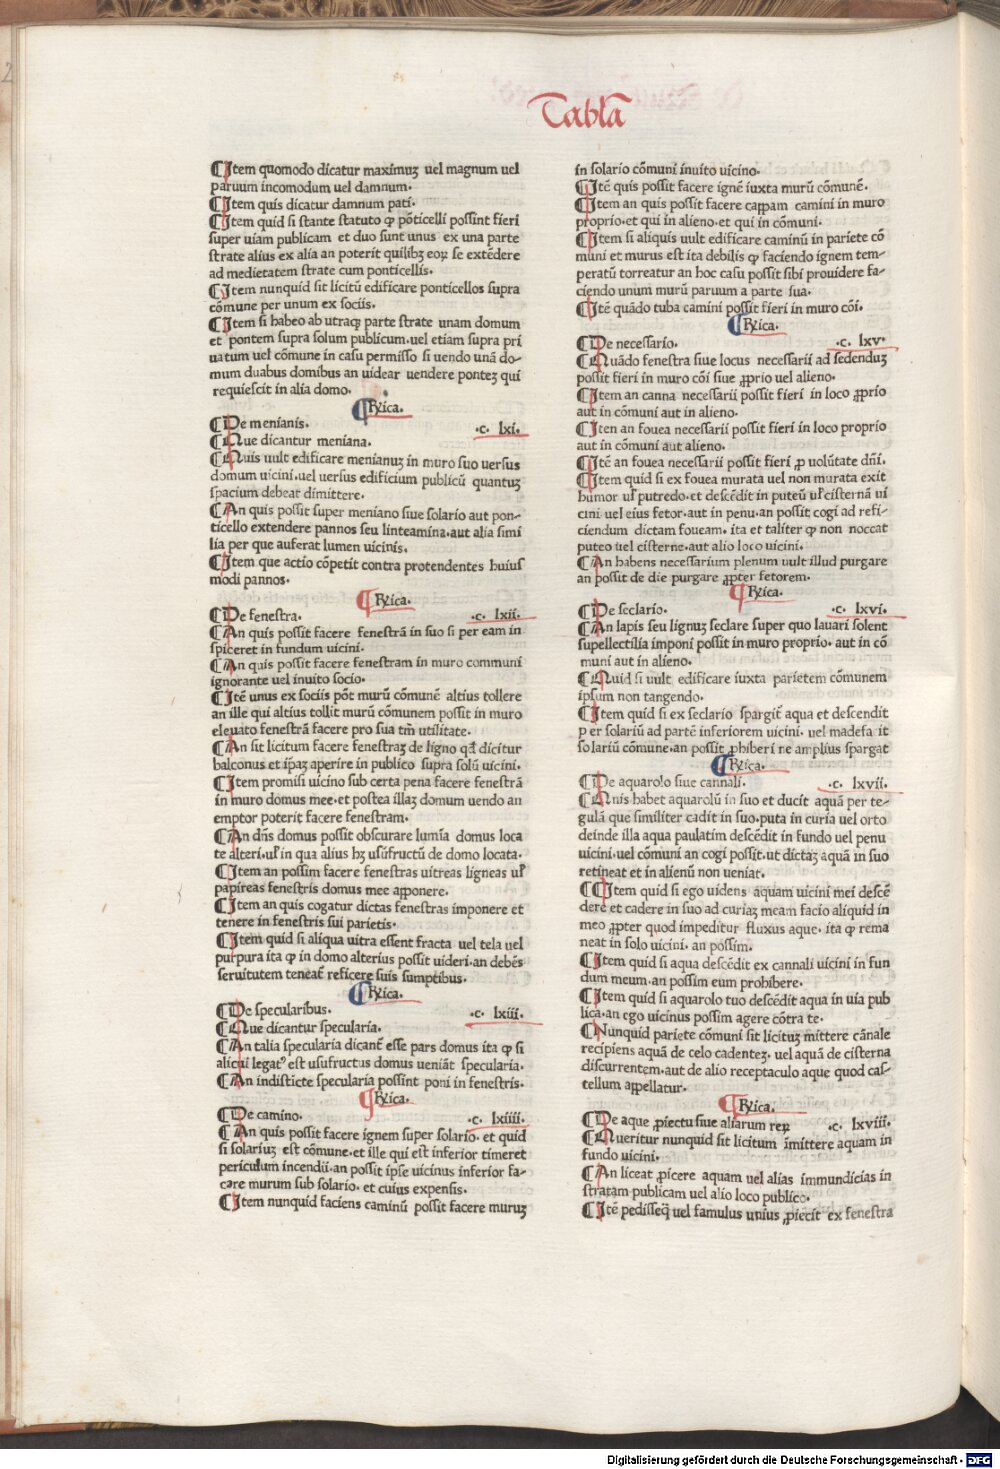 Tabla
¶Item quomodo dicatur maximuʒ uel magnum uel
paruum incomodum uel damnum.
¶Item quis dicatur damnum pati.
¶Item quid si stante statuto ꝙ põticelli possint fieri
super uiam publicam et duo sunt unus ex una parte
strate alius ex alia an poterit quilibʒ eoꝝ se extẽdere
ad medietatem strate cum ponticellis.
¶Item nunquid sit licitũ edificare ponticellos supra
cõmune per unum ex sociis.
¶Item si habeo ab utraqꝫ parte strate unam domum
et pontem supra solum publicum.uel etiam supra pri
uatum uel cõmune in casu permisso si uendo unã do-
mum duabus domibus an uidear uendere ponteʒ qui
requiescit in alia domo.
¶Rꝛica.
¶De menianis. .c. lxi.
¶Que dicantur meniana.
¶Quis uult edificare menianuʒ in muro suo uersus
domum uicini.uel uersus edificium publicũ quantuʒ
spacium debeat dimittere.
¶An quis possit super meniano siue solario aut pon-
ticello extendere pannos seu linteamina.aut alia simi
lia per que auferat lumen uicinis.
¶Item que actio cõpetit contra protendentes huius
modi pannos.
¶Rꝛica.
¶De fenestra. .c. lxii.
¶An quis possit facere fenestrã in suo si per eam in
spiceret in fundum uicini.
¶An quis possit facere fenestram in muro communi
ignorante uel inuito socio.
¶Itẽ unus ex sociis põt murũ cõmunẽ altius tollere
an ille qui altius tollit murũ cõmunem possit in muro
eleuato fenestrã facere pro sua tm̃ utilitate.
¶An sit licitum facere fenestraʒ de ligno qđ dicitur
balconus et ip̃aʒ aperire in publico supra solũ uicini.
¶Item promisi uicino sub certa pena facere fenestrã
in muro domus mee.et postea illaʒ domum uendo an
emptor poterit facere fenestram.
¶An dñs domus possit obscurare lumĩa domus loca
te alteri.uꝉ in qua alius hʒ usũfructũ de domo locata.
¶Item an possim facere fenestras uitreas ligneas uꝉ
papireas fenestris domus mee apponere.
¶Item an quis cogatur dictas fenestras imponere et
tenere in fenestris sui parietis.
¶Item quid si aliqua uitra essent fracta uel tela uel
purpura ita ꝙ in domo alterius possit uideri.an debẽs
seruitutem teneat̃ reficere suis sumptibus.
¶Rꝛica.
¶De specularibus. .c. lxiii.
¶Que dicantur specularia.
¶An talia specularia dicant̃ esse pars domus ita ꝙ si
alicui legat᷒ est usufructus domus ueniãt specularia.
¶An indisticte specularia possint poni in fenestris.
¶Rꝛica.
¶De camino. .c. lxiiii.
¶An quis possit facere ignem super solario. et quid
si solariuʒ est cõmune.et ille qui est inferior timeret
periculum incendii.an possit ipse uicinus inferior fa-
cere murum sub solario. et cuius expensis.
¶Item nunquid faciens caminũ possit facere muruʒ
in solario cõmuni inuito uicino.
¶Itẽ quis possit facere ignẽ iuxta murũ cõmunẽ.
¶Item an quis possit facere cappam camini in muro
proprio.et qui in alieno.et qui in cõmuni.
¶Item si aliquis uult edificare caminũ in pariete cõ
muni et murus est ita debilis ꝙ faciendo ignem tem-
peratũ torreatur an hoc casu possit sibi prouidere fa-
ciendo unum murũ paruum a parte sua.
¶Itẽ quãdo tuba camini possit fieri in muro cõi.
¶Rꝛica.
¶De necessario. .c. lxv.
¶Quãdo fenestra siue locus necessarii ad sedenduʒ
possit fieri in muro cõi siue ꝓprio uel alieno.
¶Item an canna necessarii possit fieri in loco ꝓprio
aut in cõmuni aut in alieno.
¶Iten an fouea necessarii possit fieri in loco proprio
aut in cõmuni aut alieno.
¶Itẽ an fouea necessarii possit fieri ꝓ uolũtate dñi.
¶Item quid si ex fouea murata uel non murata exit
humor uꝉ putredo.et descẽdit in puteũ uꝉ cisternã ui
cini.uel eius fetor.aut in penu.an possit cogi ad refi-
ciendum dictam foueam. ita et taliter ꝙ non noccat
puteo uel cisterne.aut alio loco uicini.
¶An habens necessarium plenum uult illud purgare
an possit de die purgare ꝓpter fetorem.
¶Rꝛica.
¶De seclario. .c. lxvi.
¶An lapis seu lignuʒ seclare super quo lauari solent
supellectilia imponi possit in muro proprio. aut in cõ
muni aut in alieno.
¶Quid si uult edificare iuxta parietem cõmunem
ipsum non tangendo.
¶Item quid si ex seclario spargit̃ aqua et descendit
per solariũ ad partẽ inferiorem uicini. uel madefa it
solariũ cõmune.an possit ꝓhiberi ne amplius spargat
¶Rꝛica.
¶De aquarolo siue cannali. .c. lxvii.
¶Quis habet aquarolũ in suo et ducit aquã per te-
gulã que similiter cadit in suo.puta in curia uel orto
deinde illa aqua paulatim descẽdit in fundo uel penu
uicini.uel cõmuni an cogi possit.ut dictaʒ aquã in suo
retineat et in alienũ non ueniat.
¶¶Item quid si ego uidens aquam uicini mei descẽ
dere et cadere in suo ad curiaʒ meam facio aliquid in
meo ꝓpter quod impeditur fluxus aque. ita ꝙ rema
neat in solo uicini. an possim.
¶Item quid si aqua descẽdit ex cannali uicini in fun
dum meum.an possim eum prohibere.
¶Item quid si aquarolo tuo descẽdit aqua in uia pub
lica.an ego uicinus possim agere cõtra te.
¶Nunquid pariete cõmuni sit licituʒ mittere cãnale
recipiens aquã de celo cadenteʒ. uel aquã de cisterna
discurrentem.aut de alio receptaculo aque quod cas-
tellum appellatur.
¶Rꝛica.
¶De aque ꝓiectu siue aliarum reꝝ .c. lxviii.
¶Queritur nunquid sit licitum ĩmittere aquam in
fundo uicini.
¶An liceat ꝓicere aquam uel alias immundicias in
stratam publicam uel alio loco publico.
¶Itẽ pedisseq̃ uel famulus unius ꝓiecit ex fenestra
Digitalisierung gefördert durch die Deutsche Forschungsgemeinschaft - DFG